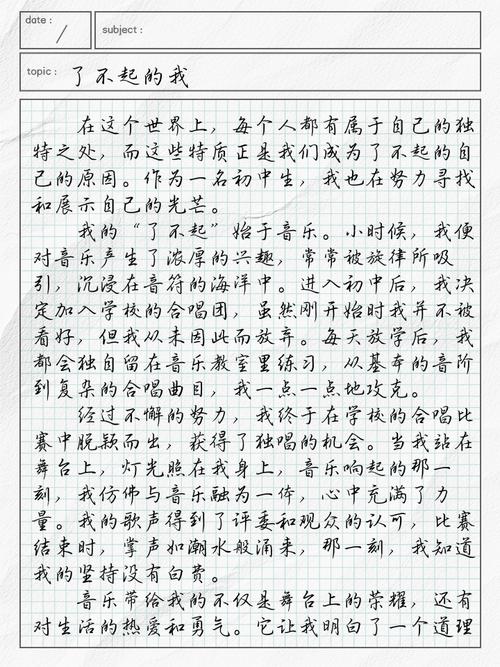 date :
subject :
topic : 了不起的我
在这个世界上，每个人都有属于自己的独
特之处，而这些特质正是我们成为了不起的自
己的原因。作为一名初中生，我也在努力寻找
和展示自己的光芒。
我的“了不起”始于音乐。小时候，我便
对音乐产生了浓厚的兴趣，常常被旋律所吸
引，沉浸在音符的海洋中。进入初中后，我决
定加入学校的合唱团，虽然刚开始时我并不被
看好，但我从未因此而放弃。每天放学后，我
都会独自留在音乐教室里练习，从基本的音阶
到复杂的合唱曲目，我一点一点地攻克。
经过不懈的努力，我终于在学校的合唱比
赛中脱颖而出，获得了独唱的机会。当我站在
舞台上，灯光照在我身上，音乐响起的那一
刻，我仿佛与音乐融为一体，心中充满了力
量。我的歌声得到了评委和观众的认可，比赛
结束时，掌声如潮水般涌来，那一刻，我知道
我的坚持没有白费。
音乐带给我的不仅是舞台上的荣耀，还有
对生活的热爱和勇气。它让我明白了一个道理